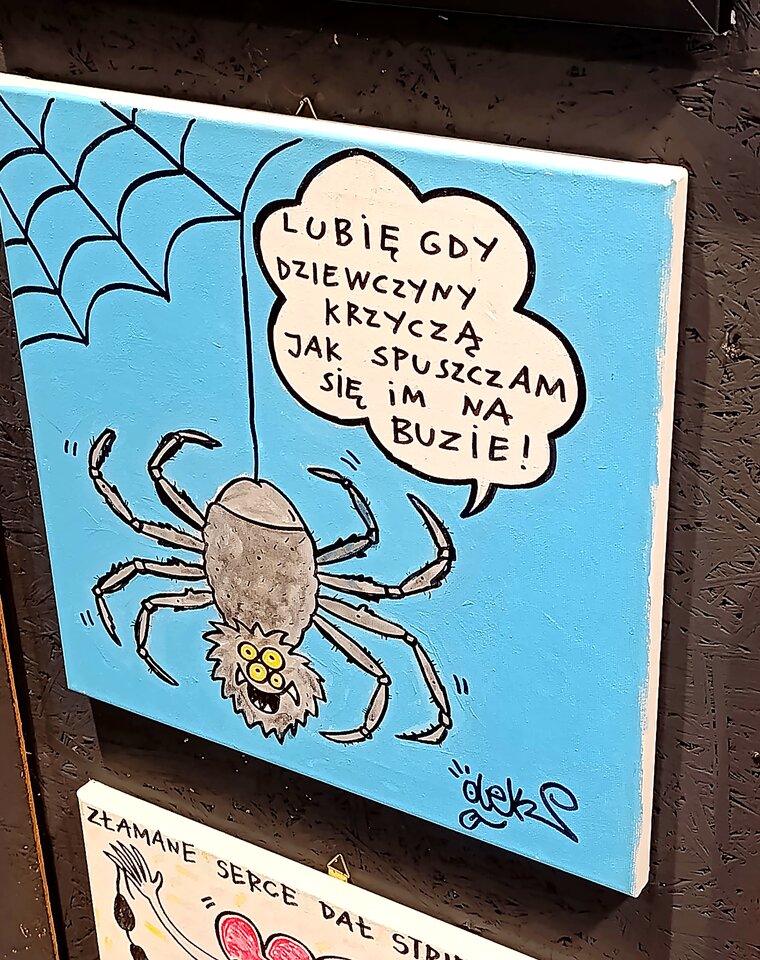 LUBIĘ GDY
DZIEWCZYNY
KRZYCZĄ
JAK SPUSZCZAM
SIĘ iM NA
BUZIE!
ZŁAMANE SERCE DAŁ